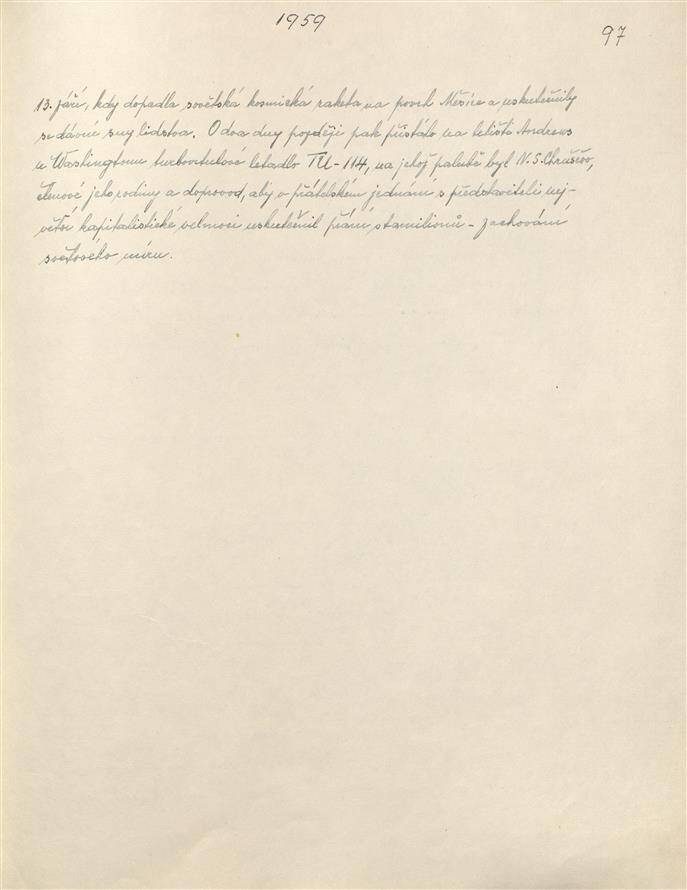 1959
97
13. září, kdy dopadla sovětská kosmická raketa na povrch Měsíce a uskutečnily
se dávné sny lidstva. O dva dny později pak přistálo na letišti Andrews
u Washingtonu turbovrtulové letadlo TU-114, na jehož palubě byl N. S. Chruščov,
členové jeho rodiny a doprovod, aby v přátelském jednání s představiteli nej-
větší kapitalistické velmoci uskutečnil přání stamilionů - zachování
světového míru.